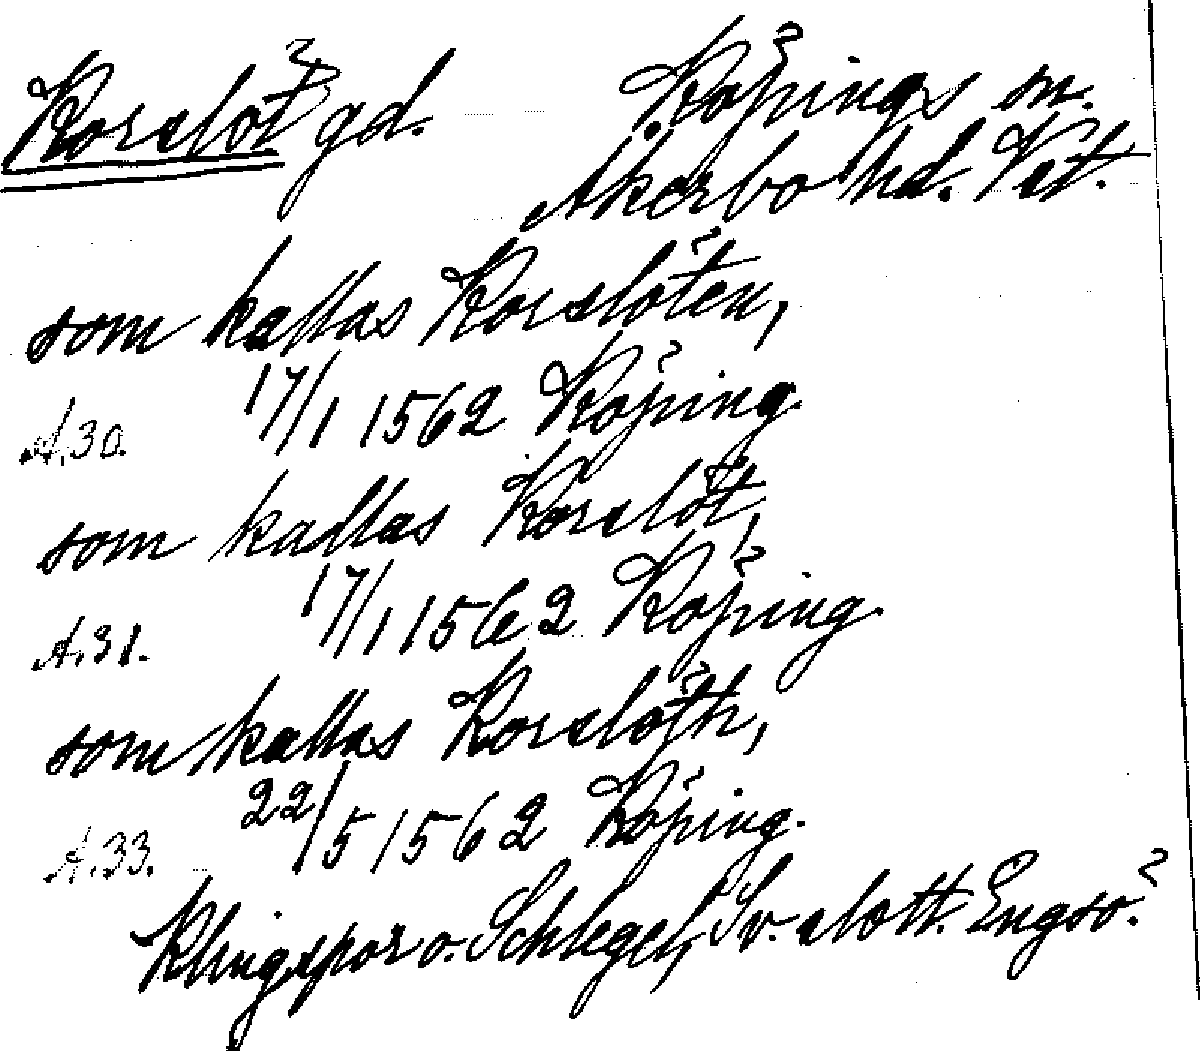 Korslöt gd. Köpings sn.
Åkerbo hd. Vst.
som kallas Korslöten,
A.30. 17/1 1562 Köping
som kallas Korslöt,
A.31. 17/1 1562 Köping.
som kallas Korslöth,
A.33. 22/5 1562 Köping.
Klingspor o. Schlegel, Sv. slott. Engsö.